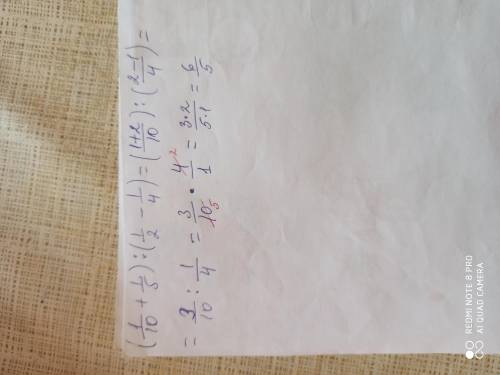 (1/10 + 1/5) : (1/2 − 1/4) = (1+2/10) : (2−1/4) =
= 3/10 : 1/4 = 3/10 5 · 4 2/1 = 3·2/5·1 = 6/5
REDMI NOTE 8 PRO
AI QUAD CAMERA